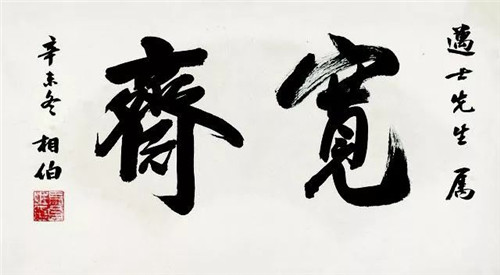 邁士先生属
寬齋
辛未冬
相伯